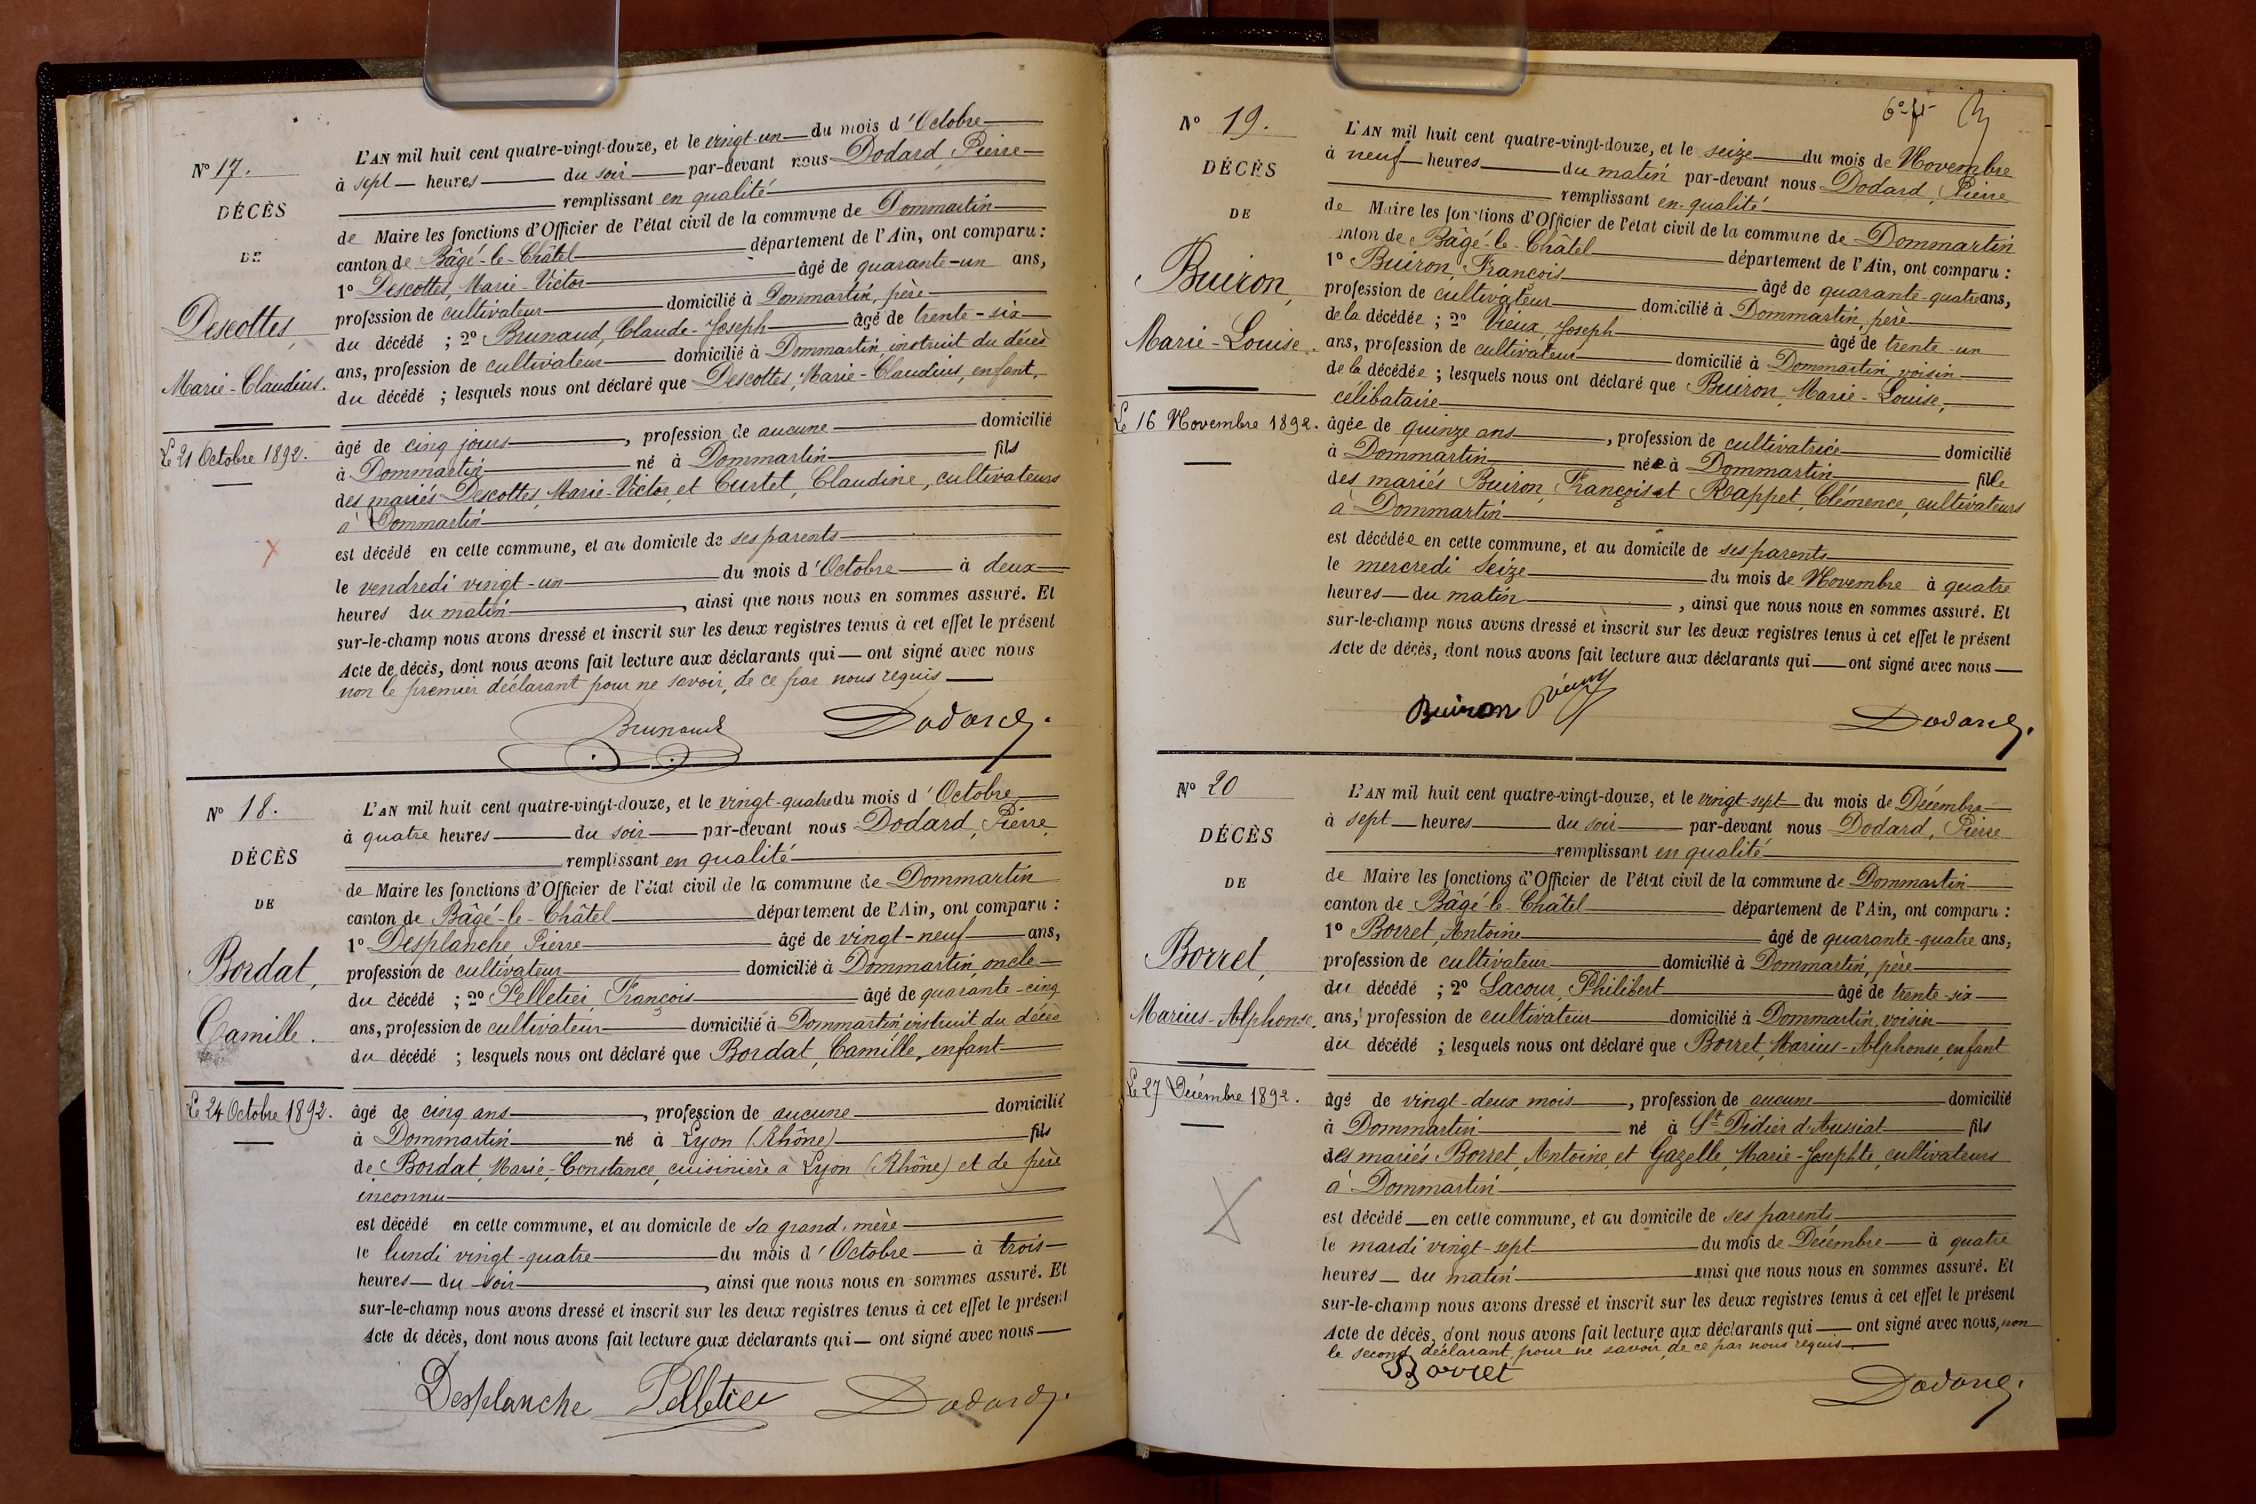 Nº 17.
DÉCÈS
DE
Descottes,
Marie-Claudius.
Le 21 Octobre 1892.
L'AN mil huit cent quatre-vingt-douze, et le vingt-un du mois d'Octobre
à sept heures du soir par-devant nous Dodard, Pierre
remplissant en qualité
de Maire les fonctions d'Officier de l'état civil de la commune de Dommartin
canton de Bâgé-le-Châtel département de l'Ain, ont comparu :
1º Descottes, Marie-Victor âgé de quarante-un ans,
profession de cultivateur domicilié à Dommartin, père
du décédé ; 2º Brunaud, Claude-Joseph âgé de trente-six
ans, profession de cultivateur domicilié à Dommartin, instruit du décès
du décédé ; lesquels nous ont déclaré que Descottes, Marie-Claudius, enfant,
âgé de cinq jours, profession de aucune domicilié
à Dommartin né à Dommartin fils
des mariés Descottes, Marie-Victor, et Curtet, Claudine, cultivateurs
à Dommartin
est décédé en cette commune, et au domicile de ses parents
le vendredi vingt-un du mois d'Octobre à deux
heures du matin, ainsi que nous nous en sommes assuré. Et
sur-le-champ nous avons dressé et inscrit sur les deux registres tenus à cet effet le présent
Acte de décès, dont nous avons fait lecture aux déclarants qui ont signé avec nous
non le premier déclarant pour ne savoir, de ce par nous requis
Brunaud Dodard.
Nº 18.
DÉCÈS
DE
Bordat,
Camille.
Le 24 Octobre 1892.
L'AN mil huit cent quatre-vingt-douze, et le vingt-quatre du mois d'Octobre
à quatre heures du soir par-devant nous Dodard, Pierre
remplissant en qualité
de Maire les fonctions d'Officier de l'état civil de la commune de Dommartin
canton de Bâgé-le-Châtel département de l'Ain, ont comparu :
1º Desplanche, Pierre âgé de vingt-neuf ans,
profession de cultivateur domicilié à Dommartin, oncle
du décédé ; 2º Pelletier, François âgé de quarante-cinq
ans, profession de cultivateur domicilié à Dommartin instruit du décès
du décédé ; lesquels nous ont déclaré que Bordat, Camille, enfant
âgé de cinq ans, profession de aucune domicilié
à Dommartin né à Lyon (Rhône) fils
de Bordat, Marie-Constance, cuisinière à Lyon (Rhône) et de père
inconnu
est décédé en cette commune, et au domicile de sa grand'mère
le lundi vingt-quatre du mois d'Octobre à trois
heures du soir, ainsi que nous nous en sommes assuré. Et
sur-le-champ nous avons dressé et inscrit sur les deux registres tenus à cet effet le présent
Acte de décès, dont nous avons fait lecture aux déclarants qui ont signé avec nous
Desplanche Pelletier Dodard.
Nº 19.
DÉCÈS
DE
Buiron,
Marie-Louise.
Le 16 Novembre 1892.
L'AN mil huit cent quatre-vingt-douze, et le seize du mois de Novembre
à neuf heures du matin par-devant nous Dodard, Pierre
remplissant en qualité
de Maire les fonctions d'Officier de l'état civil de la commune de Dommartin
canton de Bâgé-le-Châtel département de l'Ain, ont comparu :
1º Buiron, François âgé de quarante-quatre ans,
profession de cultivateur domicilié à Dommartin, père
de la décédée ; 2º Vieux, Joseph âgé de trente-un
ans, profession de cultivateur domicilié à Dommartin, voisin
de la décédée ; lesquels nous ont déclaré que Buiron, Marie-Louise,
célibataire
âgée de quinze ans, profession de cultivatrice domicilié
à Dommartin née à Dommartin fille
des mariés Buiron, François et Rappet, Clémence, cultivateurs
à Dommartin
est décédée en cette commune, et au domicile de ses parents
le mercredi seize du mois de Novembre à quatre
heures du matin, ainsi que nous nous en sommes assuré. Et
sur-le-champ nous avons dressé et inscrit sur les deux registres tenus à cet effet le présent
Acte de décès, dont nous avons fait lecture aux déclarants qui ont signé avec nous
Buiron Vieux Dodard.
Nº 20
DÉCÈS
DE
Borret,
Marius-Alphonse.
Le 27 Décembre 1892.
L'AN mil huit cent quatre-vingt-douze, et le vingt-sept du mois de Décembre
à sept heures du soir par-devant nous Dodard, Pierre
remplissant en qualité
de Maire les fonctions d'Officier de l'état civil de la commune de Dommartin
canton de Bâgé-le-Châtel département de l'Ain, ont comparu :
1º Borret, Antoine âgé de quarante-quatre ans,
profession de cultivateur domicilié à Dommartin, père
du décédé ; 2º Lacour, Philibert âgé de trente-six
ans, profession de cultivateur domicilié à Dommartin, voisin
du décédé ; lesquels nous ont déclaré que Borret, Marius-Alphonse, enfant
âgé de vingt-deux mois, profession de aucune domicilié
à Dommartin né à St Didier d'Aussiat fils
des mariés Borret, Antoine, et Gazelle, Marie-Josephte, cultivateurs
à Dommartin
est décédé en cette commune, et au domicile de ses parents
le mardi vingt-sept du mois de Décembre à quatre
heures du matin ainsi que nous nous en sommes assuré. Et
sur-le-champ nous avons dressé et inscrit sur les deux registres tenus à cet effet le présent
Acte de décès, dont nous avons fait lecture aux déclarants qui ont signé avec nous, non
le second déclarant, pour ne savoir, de ce par nous requis
Borret
Dodard.